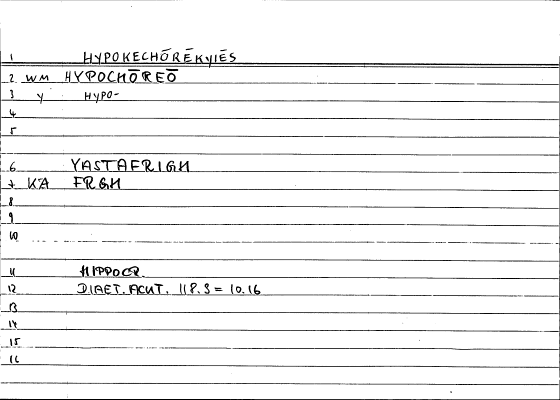 1 HYPOKECHŌRĒKYIĒS
2 WM HYPOCHŌREŌ
3 Y HYPO-
4
5
6 YASTAFRIGH
7 KA FRGH
8
9
10
11 HIPPOCR.
12 DIAET.ACUT. 118.3 = 10.16
13
14
15
16